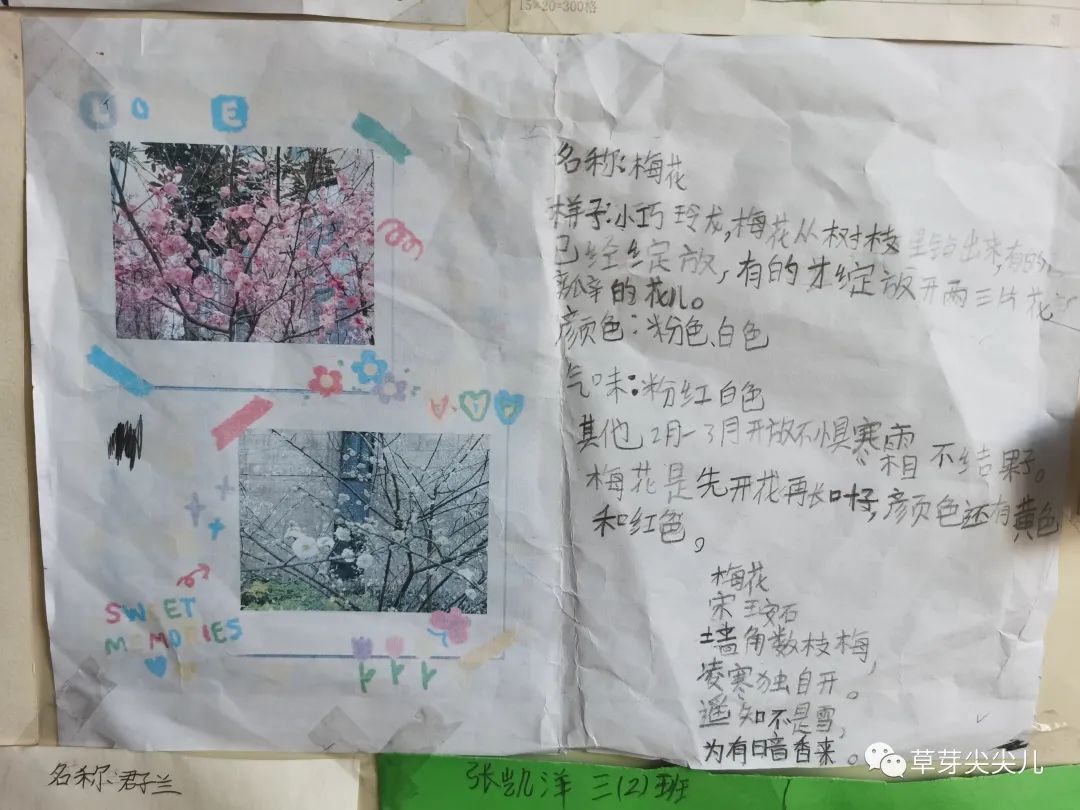 15×20=300格
L O E
名称:梅花
样子:小巧玲龙,梅花从树枝里钻出来,有的
已经绽放,有的才绽放开两三片花
的花儿。
颜色:粉色、白色
气味:粉红白色
其他 2月-3月开放不惧寒霜 不结果。
梅花是先开花再长叶子,颜色还有黄色
和红色。
梅花
宋 王安石
墙角数枝梅,
凌寒独自开。
遥知不是雪,
为有暗香来。
SWEET
MEMORIES
草芽尖尖儿
名称:君子兰
张凯洋 三(2)班